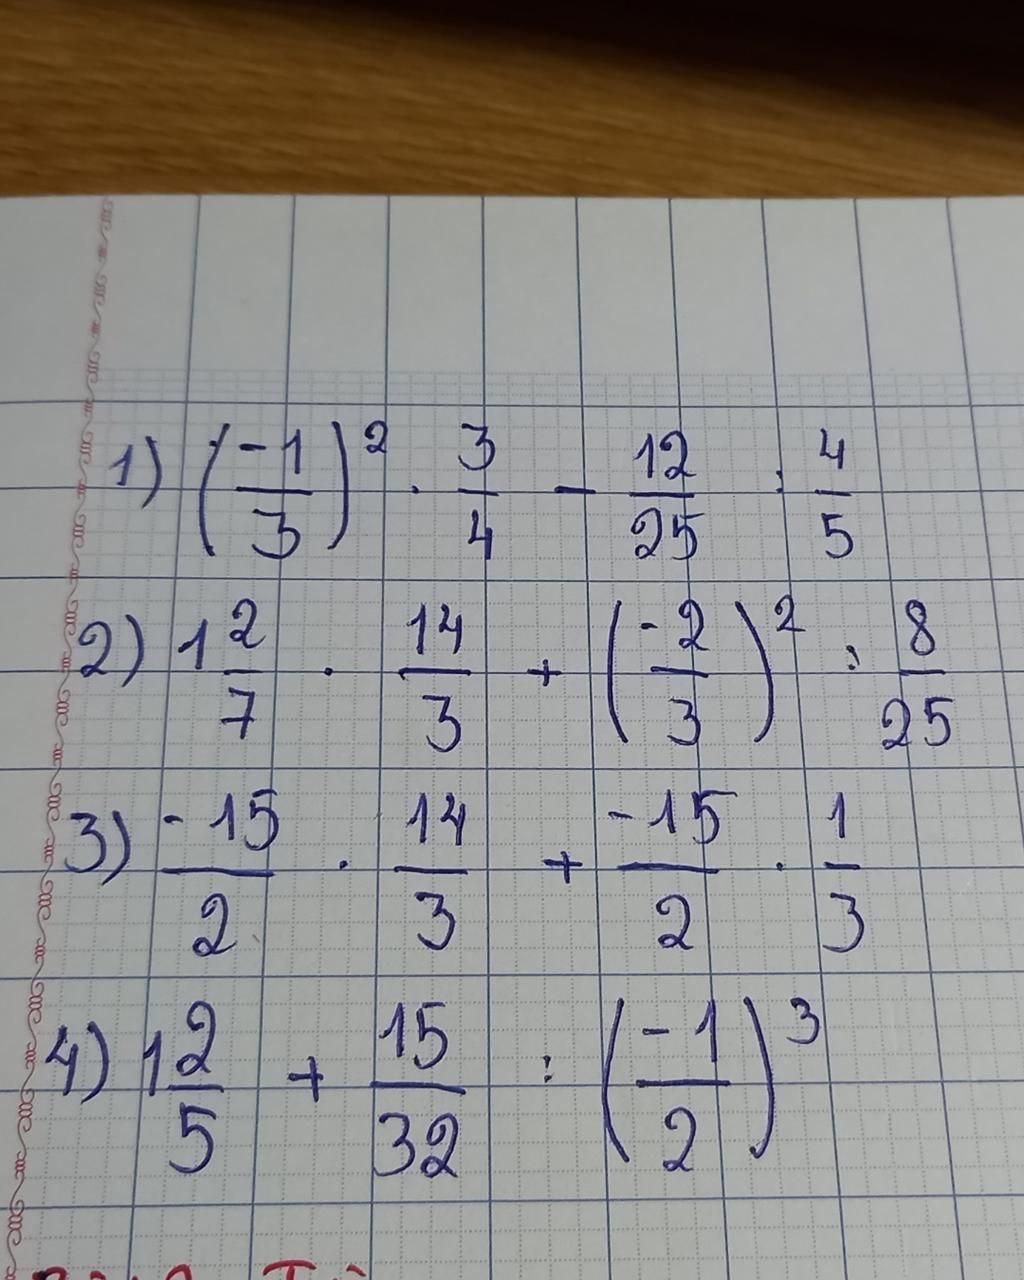 1) (-1/3)² · 3/4 - 12/25 : 4/5
2) 1 2/7 · 14/3 + (-2/3)² : 8/25
3) -15/2 · 14/3 + -15/2 · 1/3
4) 1 2/5 + 15/32 : (-1/2)³